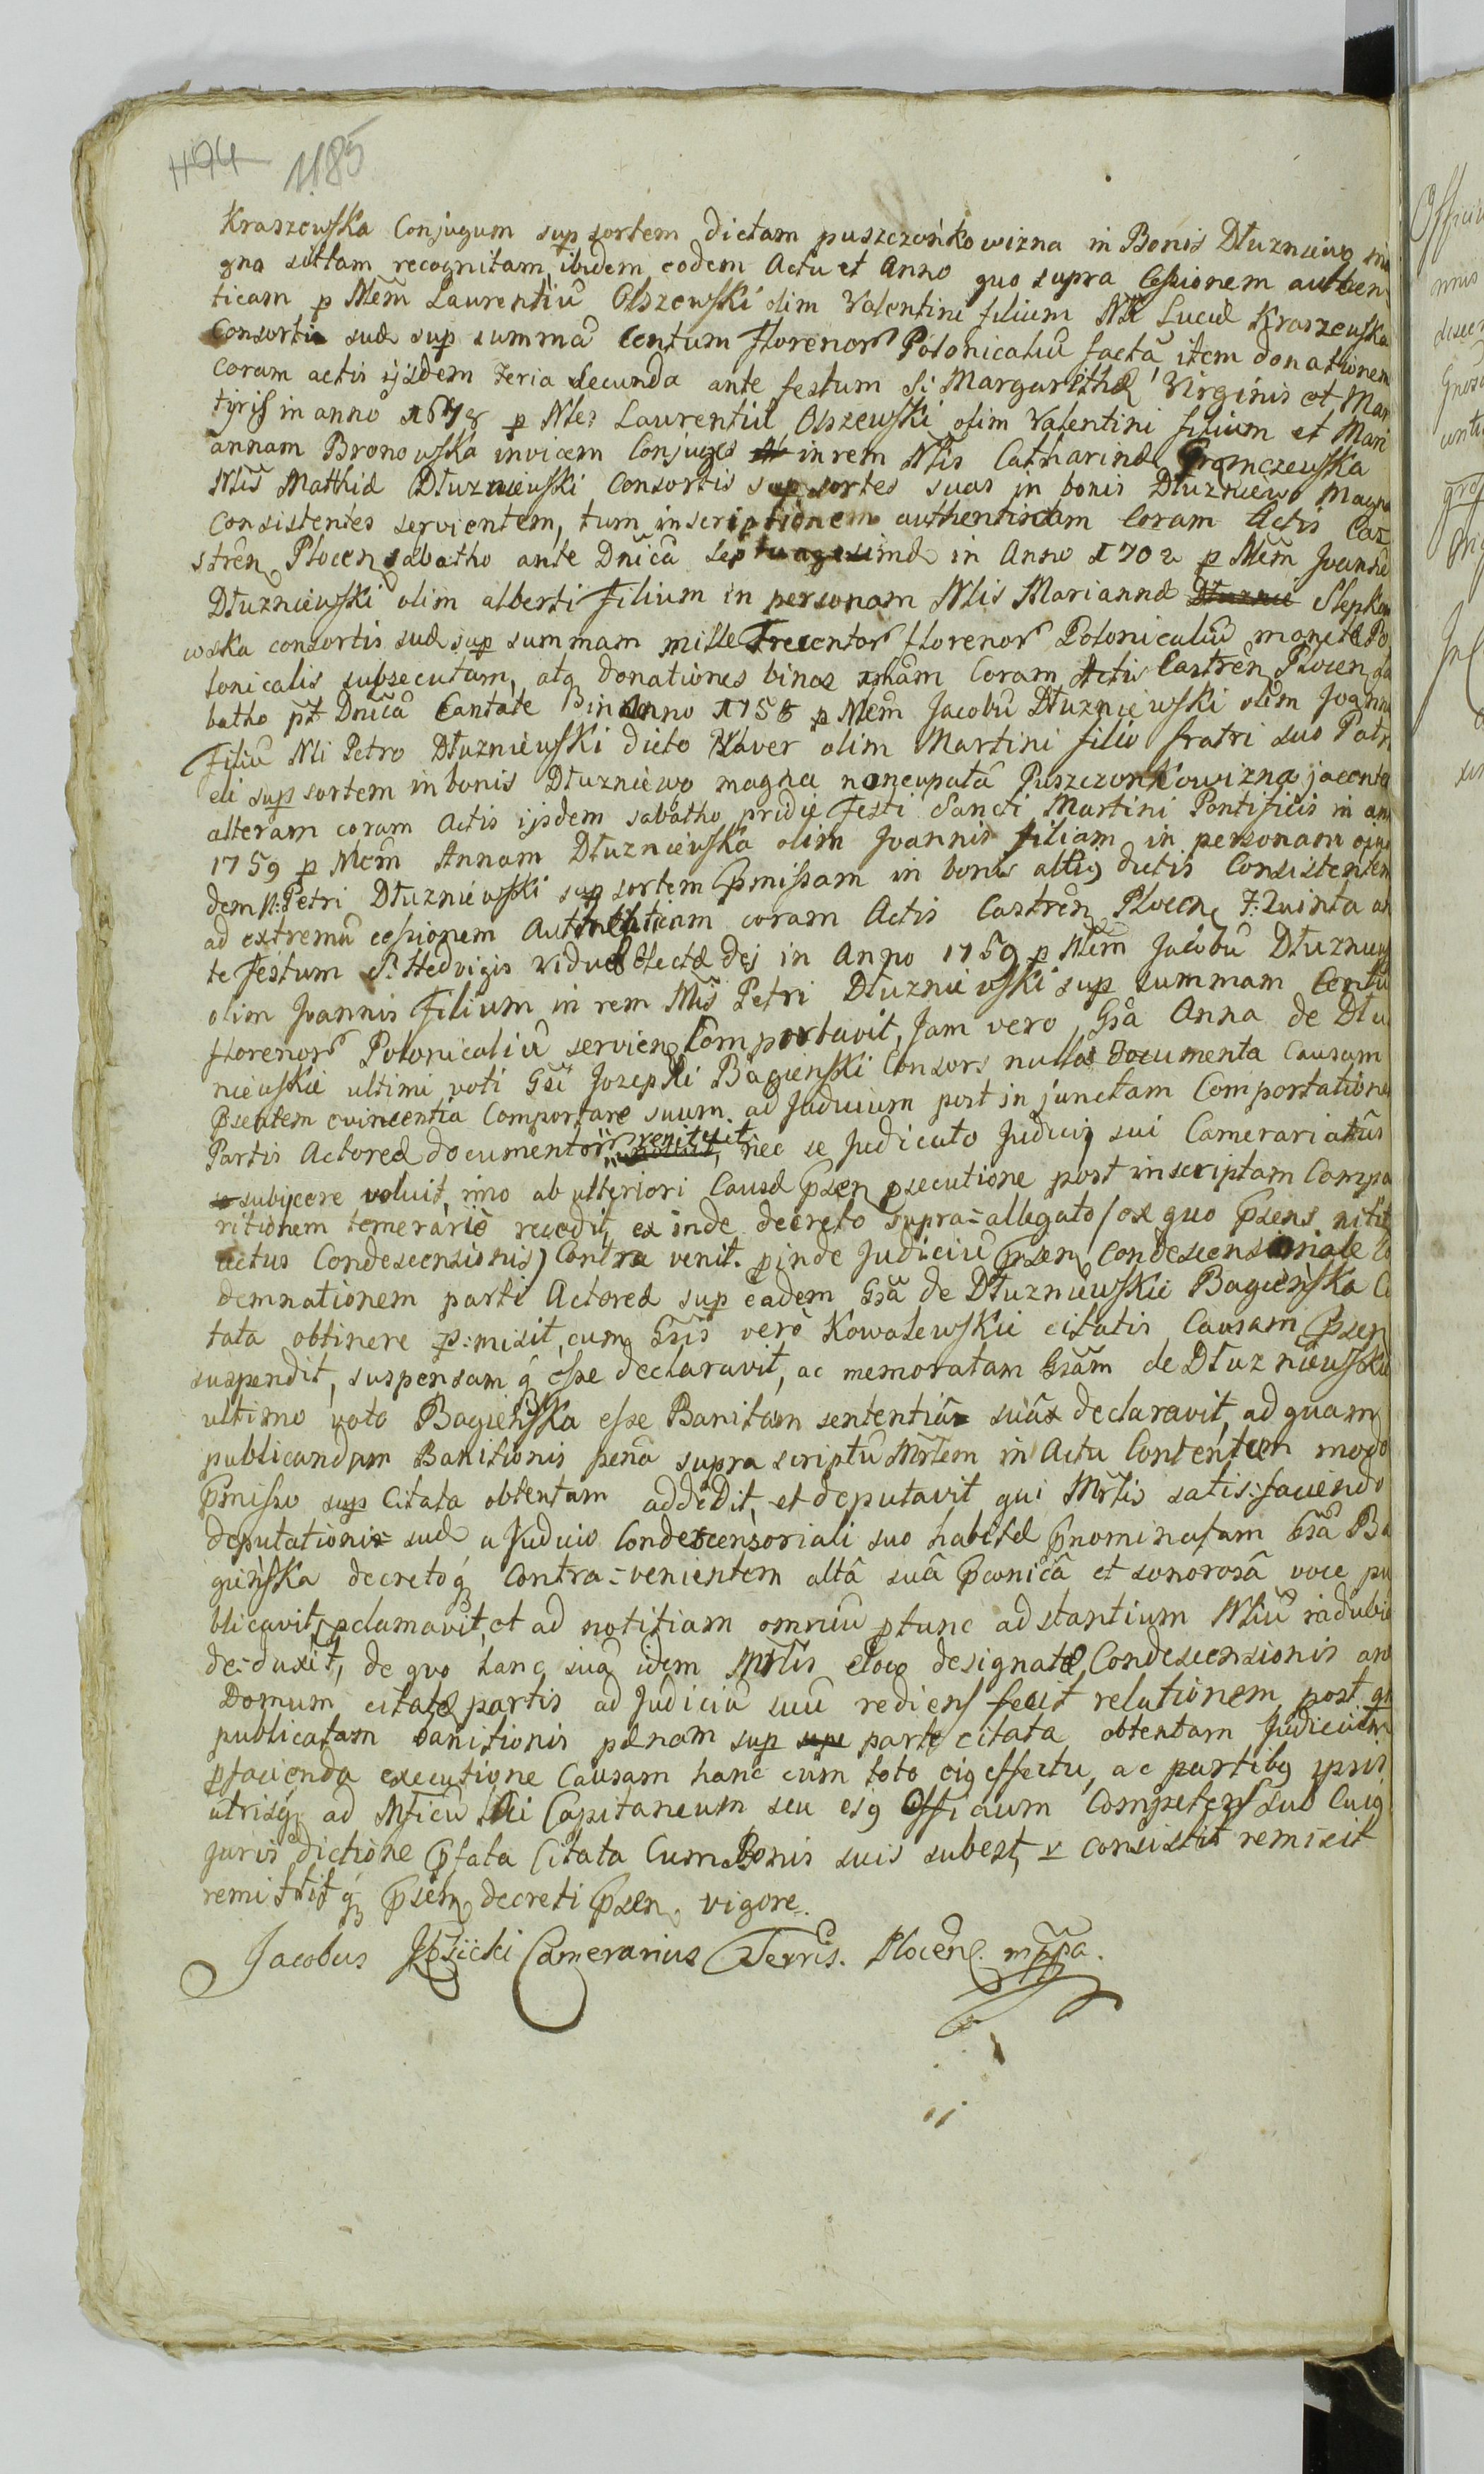 494 1185
Kraszewska Conjugum sup sortem dictam puszczońkowizna in Bonis Dłuzniewo ma
gna sittam recognitam, ibidem eodem Actu et Anno quo supra Cessionem authen
ticam p Nlem Laurentiũ Olszewski olim Valentini filium Nli Luciæ Kraszewska
Consorti suæ sup summã Centum Florenor Polonicaliũ factã, item donationem
coram actis ijsdem Feria Secunda ante festum S: Margarithæ Virginis et Mar
tyris in anno 1678 p Nles Laurentiũ Olszewski olim Valentini filium et Mari
annam Bronowska invicem Conjuges in rem Nlis Catharinæ Gromczewska
Nlis Matthiæ Dłuzniewski Consortis sup sortes suas in bonis Dłuzniewo Magna
Consistentes servientem, tum inscriptionem authenticam Coram Actis Cas
tren Plocen sabatho ante Dnicã Septuagesimæ in Anno 1702 p Nlem Joannẽ
Dłuzniewski olim alberti Filium in personam Nlis Mariannæ Dłuznie Slepko
wska consortis suæ sup summam mille Trecentor florenor Polonicaliũ monetæ Po
lonicalis subsecutam, atq donationes binas Coram Actis Castren Plocen sa
batho pt Dnicã Cantate in Anno 1758 p Nlem Jacobũ Dłuzniewski olim Joannis
Filiũ Nli Petro Dłuzniewski dicto olim Martini filio fratri suo Patru
eli sup sortem in bonis Dłuzniewo magna noncupatã Puszczonkowizna jacente
alteram coram Actis ijsdem sabatho pridie Festi Sancti Martini Pontificis in an
1759 p Nlem Annam Dłuzniewska olim Joannis filiam in personam ejus
dem N: Petri Dłuzniewski sup sortem pmissam in bonis dictis Consistentem
ad extremũ cessionem Authenticam coram Actis Castren Plocen F: Quinta an
te Festum S. Hedvigis Viduæ Electæ Dei in Anno 1759 p Nlem Jacobũ Dłuzniews
olim Joannis Filium in rem Nlis Petri Dłuzniewski sup summam Centũ
florenor Polonicaliũ servien Comportavit, Jam vero Gsa Anna de Dłu
niewskie ultimi voti Gsi Josephi Bagienski Consors nulla Documenta Causam
psentem evincentia Comportare suum ad Judicium post injunctam Comportatione
Partis Actoreæ documentor renituit, nec se Judicato Judicij sui Camerariatus
subijcere voluit, imo ab ulteriori Causæ psen psecutione post inscriptam Compa
ritionem temerariè recedit, ex inde decreto supra-allegato / ex quo psens nitit
actus Condescensionis) Contra venit. pinde Judiciũ psen Condescensoriale Co
demnationem parti Actoreæ sup eadem Gsa de Dłuzniewskie Bagieńska Ci
tata obtinere p:misit, cum Gsis verò Kowalewskie citatis Causam psen
suspendit, suspensam q esse declaravit, ac memoratam Gsam de Dłuzniewskie
ultimo voto Bagieńska esse Banitam sententiã suã declaravit, ad quam
publicandam Banitionis penã supra scriptũ Mrlem in Actu Contentum modo
pmisso sup Citata obtentam addidit, et deputavit qui Mrlis satis-faciendo
deputationi suæ a Judicio Condescensoriali suo habitæ pnominatam Gsa Ba
gieńska decreto q Contra-venientem altã suã pconicã et sonorosã voce pu
blicavit, pclamavit, et ad notitiam omniũ ptunc adstantium Nliũ indubie
de-duxit, de quo hanc suã idem Mrlis e loco designatæ Condescensionis an
Domum citatæ partis ad Judiciũ suũ rediens fecit relationem post q
publicatam banitionis pænam sup parte citata obtentam Judicium
pfacienda executione Causam hanc cum toto eiq effectu, ac partibq ipsis
utrisq ad Mficũ Loci Capitaneum seu ejq Officium Competens suo Cuiq
jurisdictione pfata Citata Cum Bonis suis subest, v consistit remisit
remittit q psem decreti psen. vigore.
Jacobus Camerarius Terris. Plocen. mppa.